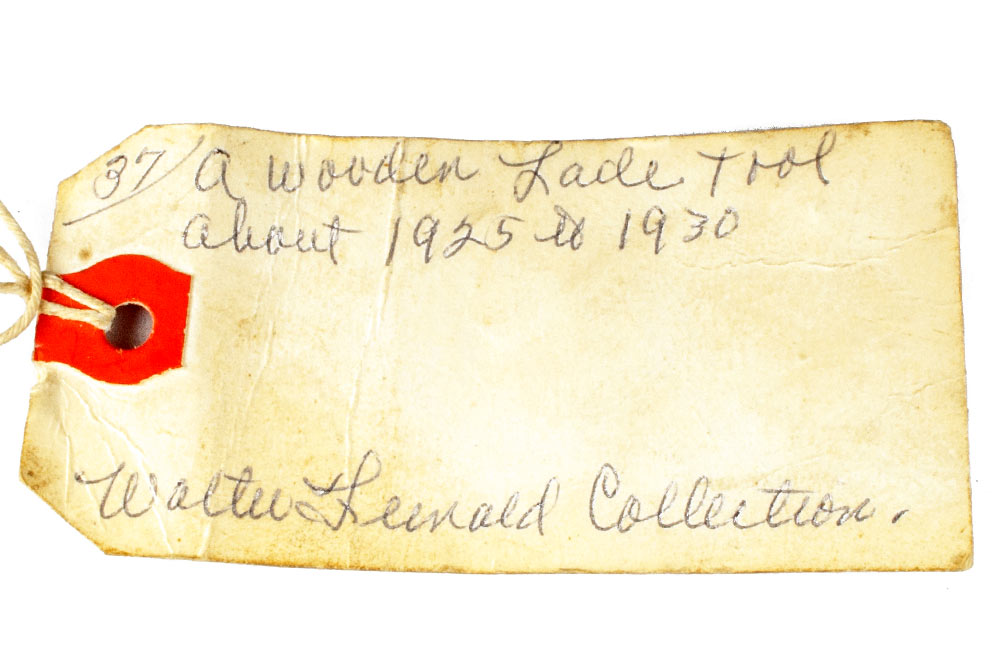 37/ A wooden Lade tool
about 1925 to 1930
Walter Collection.